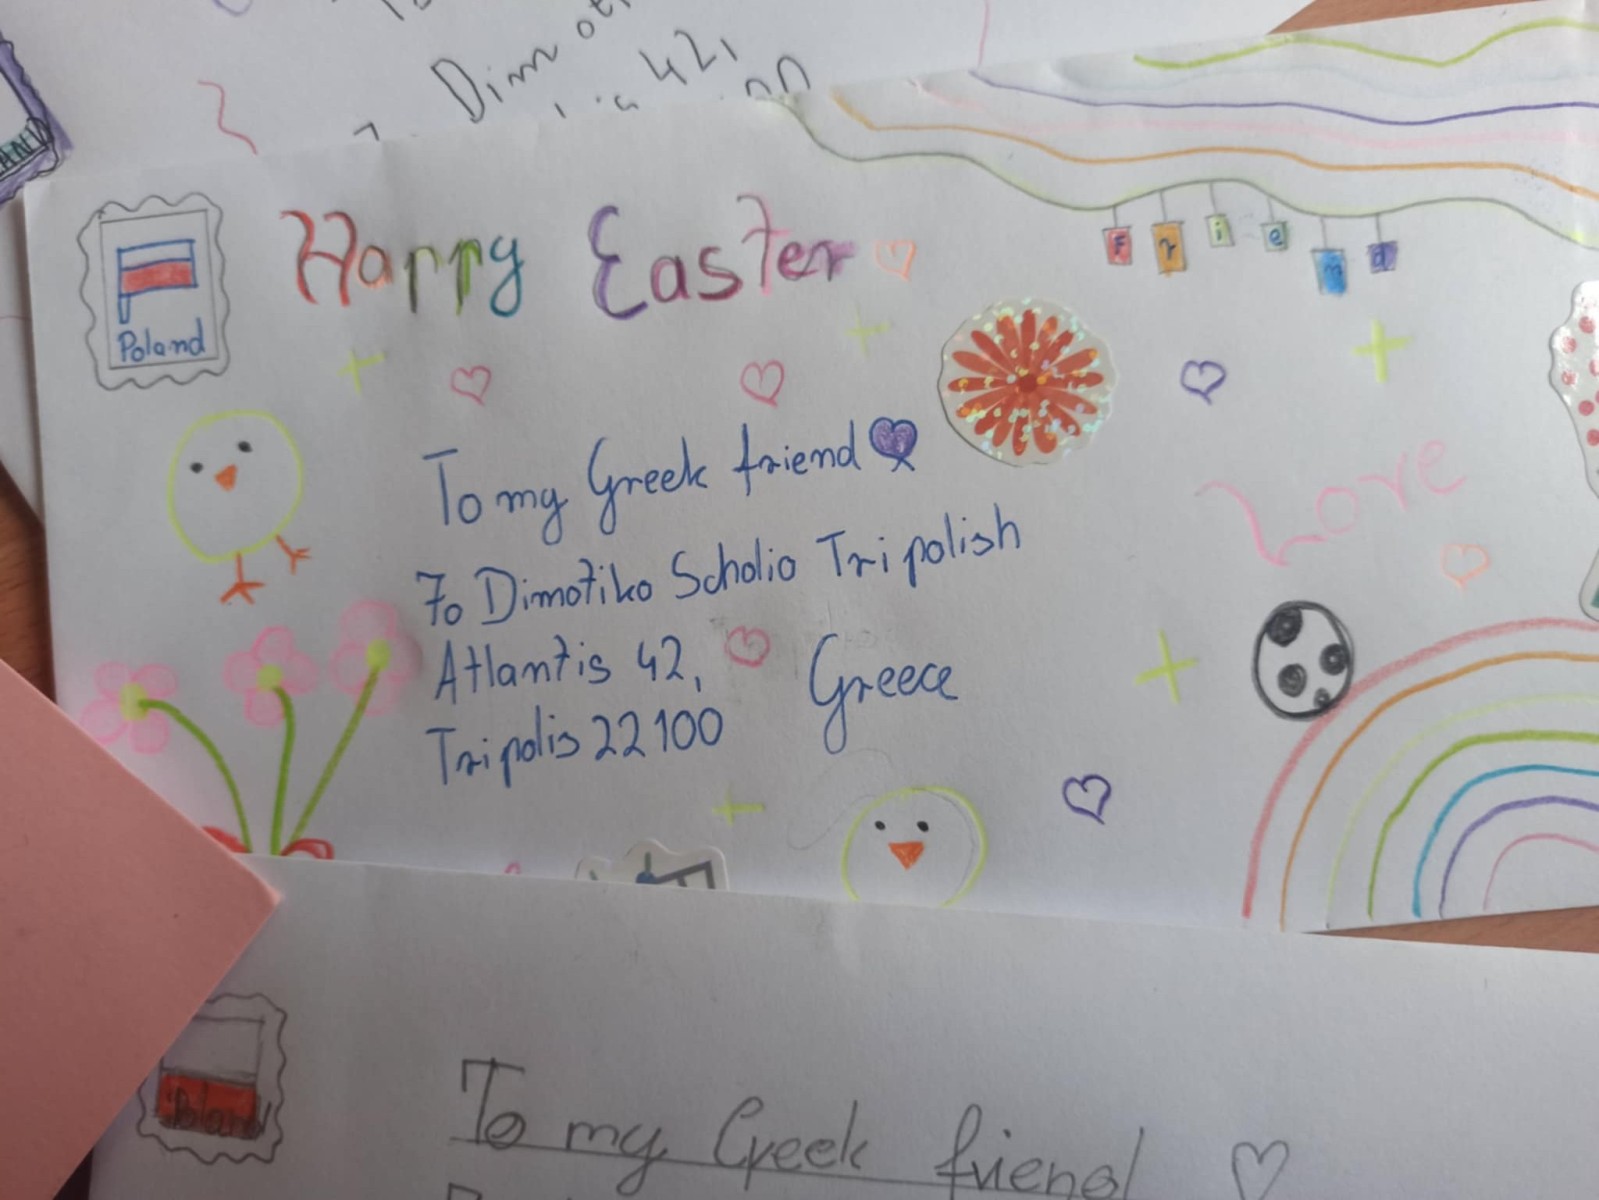 Dimot
42,
Happy Easter
Friend
Poland
To my Greek friend
7o Dimotiko Scholio Tripolish
Love
Atlantis 42,
Greece
Tripolis 22100
Poland
To my Greek friend